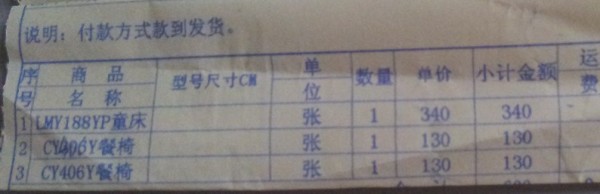 说明：付款方式款到发货。
序号 商品名称 型号尺寸CM 单位 数量 单价 小计金额 运费
1 LMY188YP童床 张 1 340 340
2 CY406Y餐椅 张 1 130 130
3 CY406Y餐椅 张 1 130 130